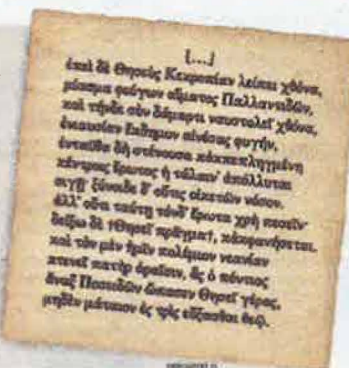 [...]
ἐπεὶ δὲ Θησεὺς Κεκροπίαν λείπει χθόνα,
μίασμα φεύγων αἵματος Παλλαντιδῶν,
καὶ τήνδε σὺν δάμαρτι ναυστολεῖ χθόνα,
ἐνιαυσίαν ἔκδημον αἰνέσας φυγήν,
ἐνταῦθα δὴ στένουσα κἀκπεπληγμένη
κέντροις ἔρωτος ἡ τάλαιν' ἀπόλλυται
σιγῇ· ξύνοιδε δ' οὔτις οἰκετῶν νόσον.
ἀλλ' οὔτι ταύτῃ τόνδ' ἔρωτα χρὴ πεσεῖν·
δείξω δὲ †Θησεῖ πρᾶγμα†, κἀκφανήσεται.
καὶ τὸν μὲν ἡμῖν πολέμιον νεανίαν
κτενεῖ πατὴρ ἀραῖσιν, ἃς ὁ πόντιος
ἄναξ Ποσειδῶν ὤπασεν Θησεῖ γέρας,
μηδὲν μάταιον ἐς τρὶς εὔξασθαι θεῷ.